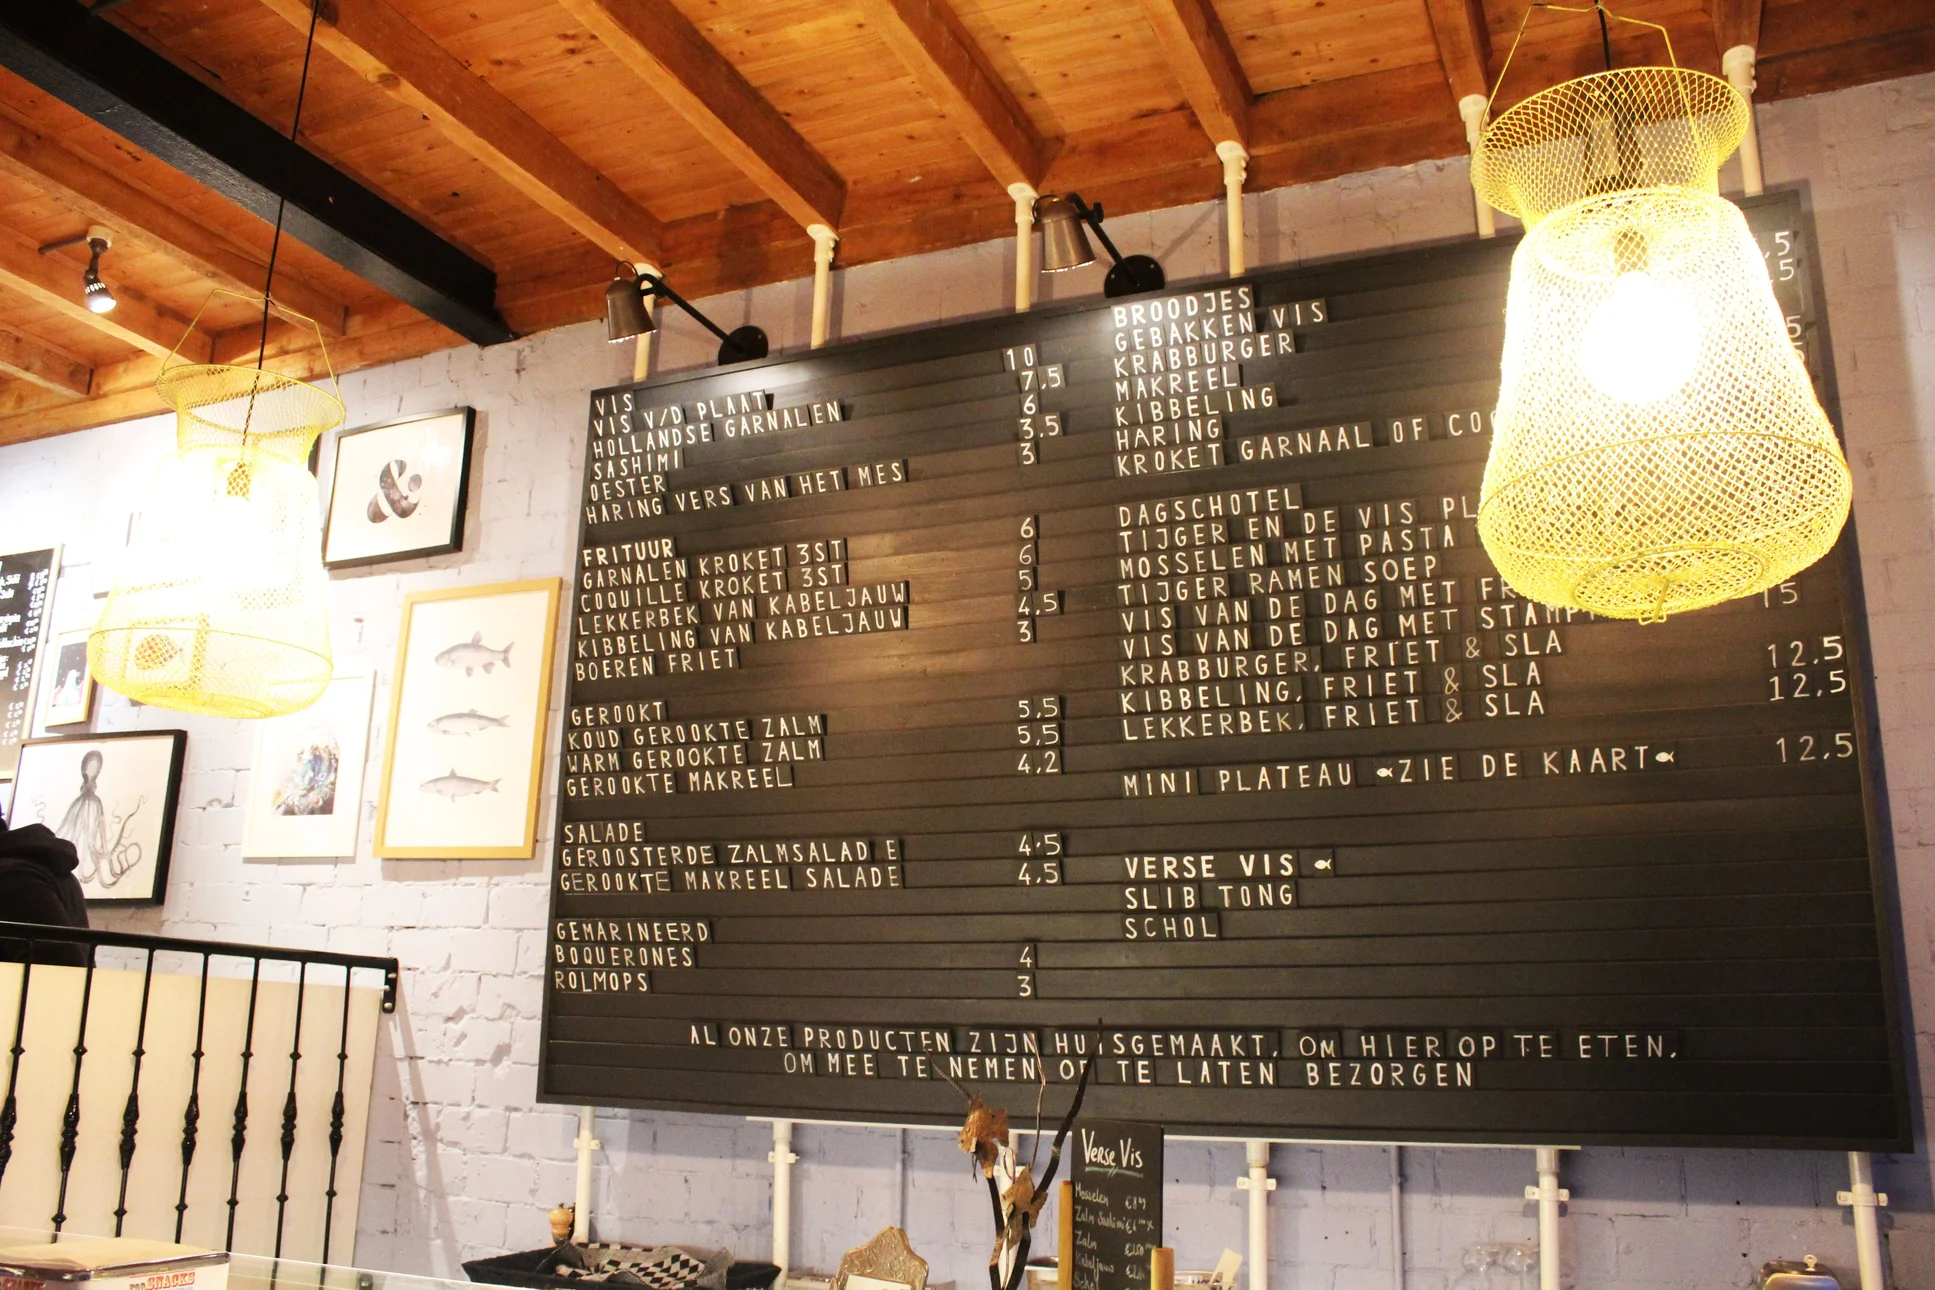 VIS
VIS V/D PLAAT 10
HOLLANDSE GARNALEN 7,5
SASHIMI 6
OESTER 3,5
HARING VERS VAN HET MES 3
FRITUUR
GARNALEN KROKET 3ST 6
COQUILLE KROKET 3ST 6
LEKKERBEK VAN KABELJAUW 5
KIBBELING VAN KABELJAUW 4,5
BOEREN FRIET 3
GEROOKT
KOUD GEROOKTE ZALM 5,5
WARM GEROOKTE ZALM 5,5
GEROOKTE MAKREEL 4,2
SALADE
GEROOSTERDE ZALMSALAD E 4·5
GEROOKTE MAKREEL SALADE 4,5
GEMARINEERD
BOQUERONES 4
ROLMOPS 3
BROODJES
GEBAKKEN VIS
KRABBURGER
MAKREEL
KIBBELING
HARING
KROKET GARNAAL OF
DAGSCHOTEL
TIJGER EN DE VIS
MOSSELEN MET PASTA
TIJGER RAMEN SOEP
VIS VAN DE DAG MET
VIS VAN DE DAG MET 15
KRABBURGER, FRIET & SLA 12,5
KIBBELING, FRIET & SLA 12,5
LEKKERBEK, FRIET & SLA
MINI PLATEAU ZIE DE KAART 12,5
VERSE VIS
SLIB TONG
SCHOL
AL ONZE PRODUCTEN ZIJN HUISGEMAAKT, OM HIER OP TE ETEN,
OM MEE TE NEMEN OF TE LATEN BEZORGEN
&
Verse Vis
Mosselen
Zalm Sashimi
Zalm
Kabeljauw
SNACKS